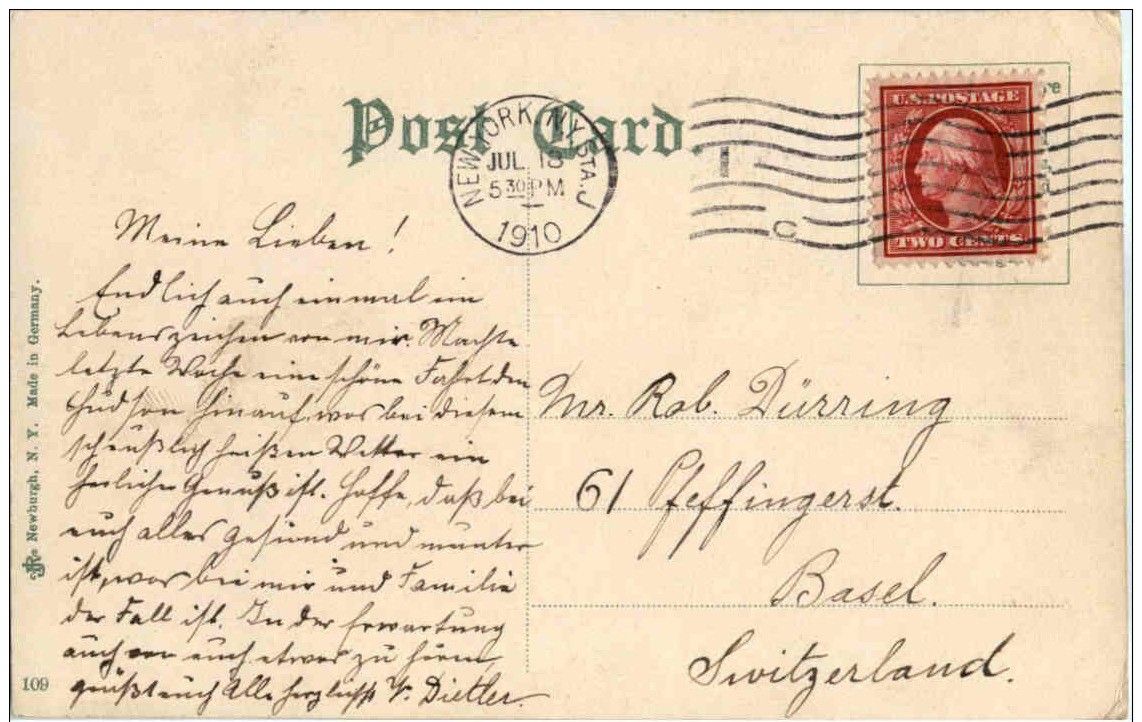 Post Card.
NEW YORK, N.Y. STA. J
JUL 18
5 30 PM
1910
U.S. POSTAGE
TWO CENTS
C
Meine Lieben!
Endlich auch einmal ein
Lebenszeichen von mir. Machte
letzte Woche eine schöne Fahrt den
Hudson hinauf, was bei diesem
scheußlich heißen Wetter ein
herrlicher Genuß ist. Hoffe, daß bei
euch alles gesund und munter
ist, was bei mir und Familie
der Fall ist. In der Erwartung
auch von euch etwas zu hören,
grüßt euch Alle herzlichst Dietler.
Mr. Rob. Dürring
61 Pfeffingerst.
Basel.
Switzerland.
Newburgh, N. Y. Made in Germany.
109